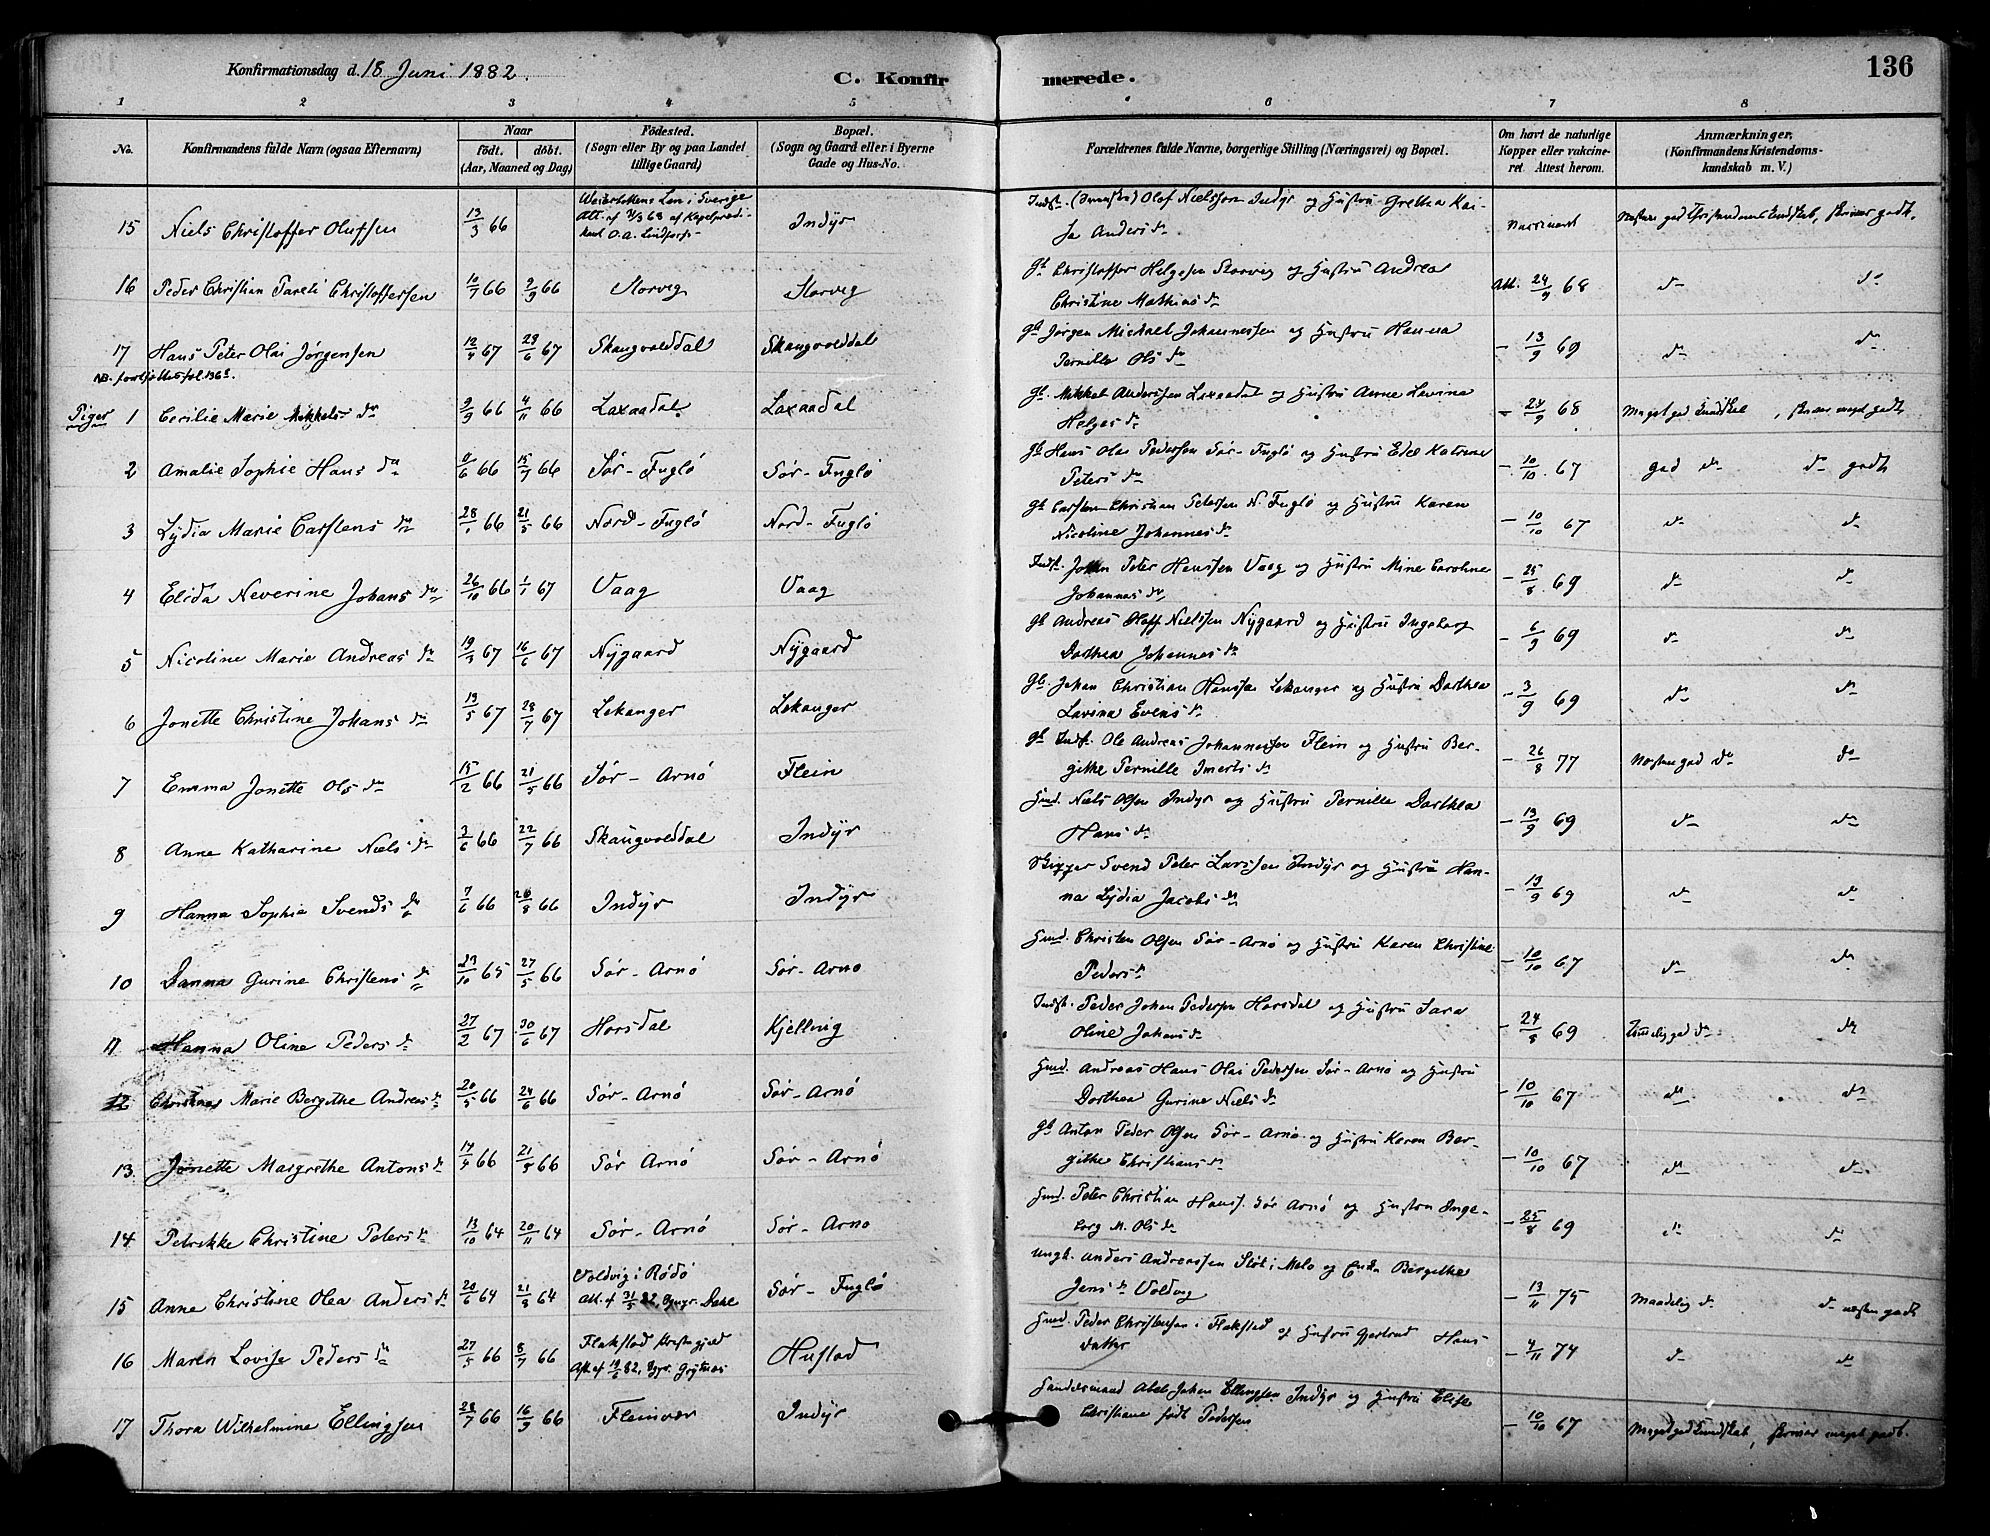 Konfirmationsdag d. 18 Juni 1882.
C. Konfirmerede.
136
1 2 3 4 5 6 7 8
No.
Konfirmandens fulde Navn (ogsaa Efternavn)
Naar
födt. döbt.
(Aar, Maaned og Dag)
Födested.
(Sogn eller By og paa Landet
tillige Gaard)
Bopæl.
(Sogn og Gaard eller i Byerne
Gade og Hus-No.
Forældrenes fulde Navne, borgerlige Stilling (Næringsvei) og Bopæl.
Om havt de naturlige
Kopper eller vakcine-
ret. Attest herom.
Anmærkninger.
(Konfirmandens Kristendoms-
kundskab m. V.)
15 Niels Christoffer Oluffsen 13/3 66 Indÿr Indst. Olof Nielsson Indÿr og Hustru Gretha Kai-
sa Anders dr
16 Peder Christian Pareli Christoffersen 10/7 66 2/9 66 Storvig Storvig Gb Christoffer Helgesen Storvig og Hustru Andrea
Christine Mathias dr Att. 24/9 68 dr dr
17 Hans Peter Olai Jörgensen 12/4 67 23/6 67 Skaugvolddal Skaugvolddal Gb Jörgen Michael Johannessen og Hustru Hanna
Pernille Ols dr - 13/9 69 dr dr
Piger 1 Cecilie Marie Mikkels dr 9/9 66 4/11 66 Laxaadal Laxaadal Gb Mikkel Anderssen Laxaadal og Hustru Anne Lavina
Helges dr - 24/9 68 Meget god Kundskab, skriver meget godt
2 Amalie Sophie Hans dr 8/6 66 15/7 66 Sör-Fuglö Sör-Fuglö Gb Hans Olai Pedersen Sör-Fuglö og Hustru Edel Katrine
Peters dr - 10/10 67 god dr dr godt
3 Lÿdia Marie Carstens dr 28/1 66 21/5 66 Nord-Fuglö Nord-Fuglö Gb Carsten Christian Petersen N. Fuglö og Hustru Karen
Nicoline Johannes dr - 10/10 67 dr dr
4 Elida Neverine Johans dr 26/10 66 1/1 67 Vaag Vaag Indst. Johan Peter Hanssen Vaag og Hustru Mine Caroline
Johannes dr - 25/8 69 dr dr
5 Nicoline Marie Andreas dr 19/3 67 16/6 67 Nÿgaard Nÿgaard Gb Andreas Oluff Nielssen Nÿgaard og Hustru Ingeborg
Dorthea Johannes dr - 6/9 69 dr dr
6 Jonette Christine Johans dr 13/5 67 28/7 67 Lekanger Lekanger Gb Johan Christian Hanssen Lekanger og Hustru Dorthea
Lavina Evens dr - 3/9 69 dr dr
7 Emma Jonette Ols dr 15/2 66 21/5 66 Sör-Arnö Flein Indst. Ole Andreas Johannessen Flein og Hustru Ber-
githe Pernille Imerts dr - 26/8 77 Næsten god dr dr
8 Anne Katharine Niels dr 3/6 66 22/7 66 Skaugvolddal Indÿr Hmd. Niels Olsen Indÿr og Hustru Pernille Dorthea
Hans dr - 13/9 69 dr dr
9 Hanna Sophie Svends dr 7/6 66 26/8 66 Indÿr Indÿr Skipper Svend Peter Larssen Indÿr og Hustru Han-
na Lÿdia Jacobs dr - 13/9 69 dr dr
10 Danna Gurine Christens dr 23/10 65 27/5 66 Sör-Arnö Sör-Arnö Hmd. Christen Olsen Sör-Arnö og Hustru Karen Christine
Peders dr - 10/10 67 dr dr
11 Hanna Oline Peders dr 27/2 67 30/6 67 Horsdal Kjelling Indst. Peder Johan Pedersen Horsdal og Hustru Sara
Oline Johans dr - 24/8 69 Temmelig god dr dr
12 Marie Bergithe Andreas dr 20/5 66 24/6 66 Sör-Arnö Sör-Arnö Hmd. Andreas Hans Olai Pedersen Sör-Arnö og Hustru
Dorthea Gurine Niels dr - 10/10 67 dr dr
13 Jonette Margrethe Antons dr 17/4 66 21/5 66 Sör Arnö Sör-Arnö Gb Anton Peder Olsen Sör-Arnö og Hustru Karen Ber-
githe Christians dr - 10/10 67 dr dr
14 Petrikke Christine Peters dr 13/10 64 20/11 64 Sör-Arnö Sör-Arnö Hmd. Peter Christian Hans. Sör Arnö og Hustru Inge-
borg M. Ols dr - 25/8 69 dr dr
15 Anne Christine Olea Anders dr 20/6 64 21/8 64 Voldvig i Rödö
Att. af 31/5 82, Dahl Sör-Fuglö Ungk. Anders Andreassen Stöt i Melö og Bergithe
Jens dr Voldvig - 13/11 75 Maadelig dr dr næsten godt
16 Maren Lovise Peders dr 27/5 66 8/7 66 Flakstad Præstegjeld
Att. af 19/6 82, Hustad Hmd. Peder Christensen i Flakstad og Hustru Gjertrud Hans
datter - 4/11 74 dr dr
17 Thora Wilhelmine Ellingsen 28/7 66 16/9 66 Fleinvær Indÿr Handelsmand Abel Johan Ellingsen Indÿr og Hustru Elise
Christiane födt Pedersen - 10/10 67 Meget god Kundskab, skriver meget godt.